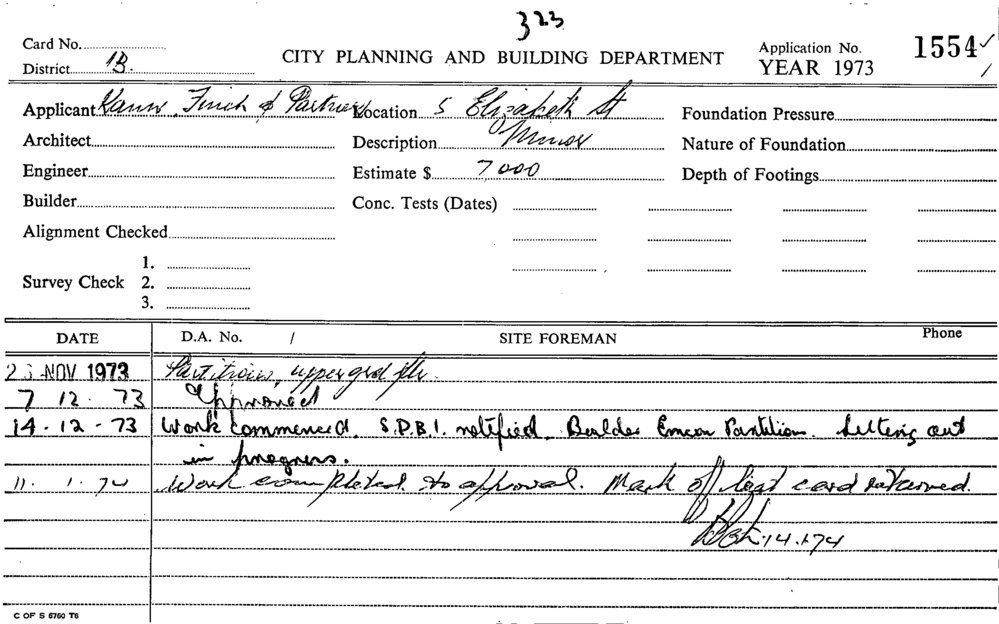 323
Card No.
District 1B.
CITY PLANNING AND BUILDING DEPARTMENT
Application No. 1554 ✓
YEAR 1973 /
Applicant Kann, Finch & Partners Location 5 Elizabeth St Foundation Pressure
Architect Description Minor Nature of Foundation
Engineer Estimate $ 7,000 Depth of Footings
Builder Conc. Tests (Dates)
Alignment Checked
1.
Survey Check 2.
3.
DATE D.A. No. / SITE FOREMAN Phone
NOV 1973 Partitions, upper grd flr.
7 12. 73 Approved
14-12-73 Work commenced. S.P.B.I. notified. Builder Emcon Partition. Setting out
in progress.
11. 1. 74 Work completed to approval. Mark off list card returned.
14.1.74
C OF S 6760 T6